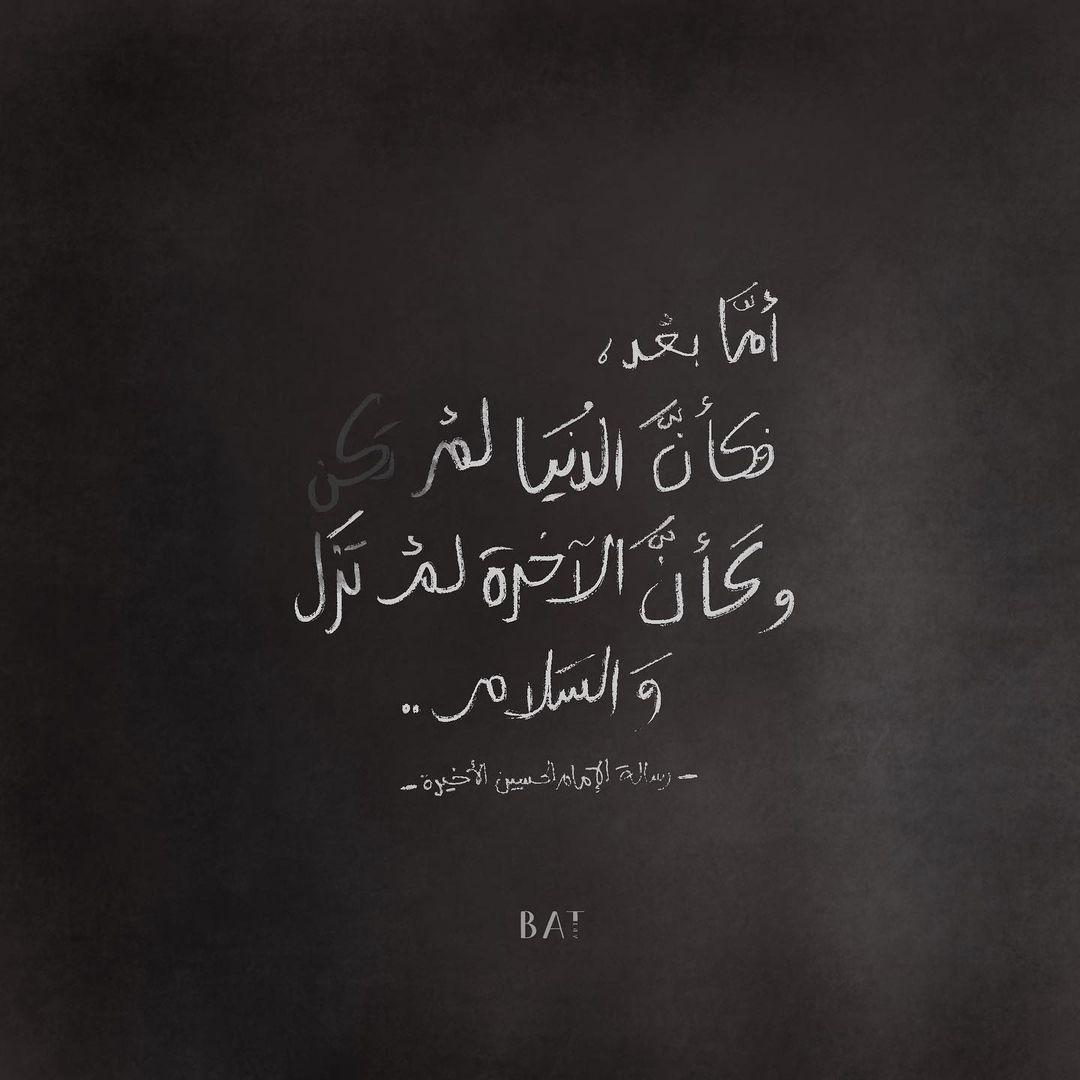 أمَّا بعْد،
فكأنَّ الدُنيَا لمْ تكن
وكَأنَّ الآخرة لمْ تَزَل
وَ السَلام..
- رسالة الإمام الحسين الأخيرة -
BAT